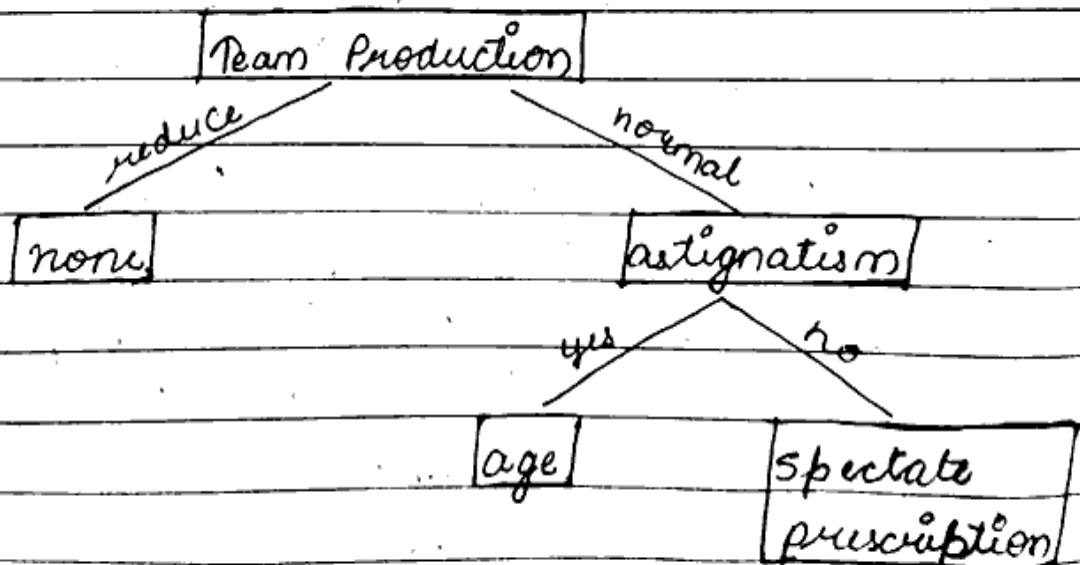 Team Production
reduce
normal
none
astignatism
yes
no
age
spectate
prescription